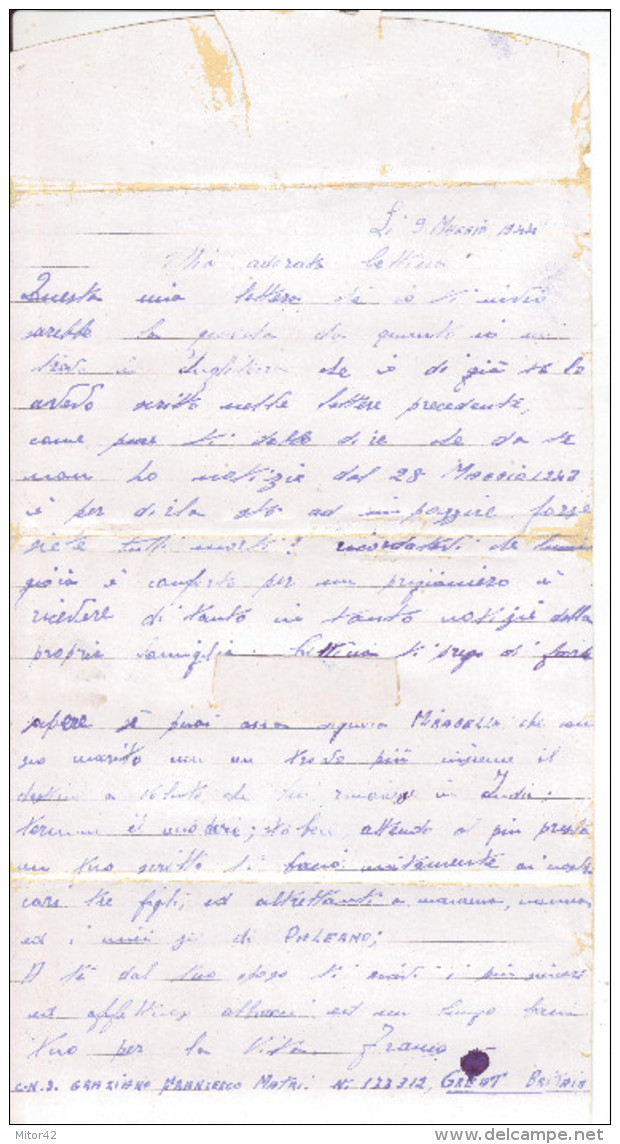 Li 9 Maggio 1944
Mia adorata Bettina
Questa mia lettera che io ti invio
sarebbe la da quanto io mi
trovo in Inghilterra che io di già te lo
avevo scritto nelle lettere precedente,
come pure ti debbo dire che da te
non ho notizie dal 28 Maggio 1943
è per dirla sto ad impazzire forse
siete tutti morti? ricordatevi che
gioia è conforto per un prigioniero è
ricevere di tanto in tanto notizie della
propria famiglia. Bettina ti prego di farle
sapere se puoi signora MIRABELLA che con
suo marito non mi trovo più insieme il
destino a voluto che lui rimase in India;
termino il mio dire; sto bene attendo al più presto
un tuo scritto ti bacio unitamente ai nostri
care tre figli, ed altrettanti a mamma, nonna
ed i miei zii di PALERMO;
A te dal tuo sposo ti invio i più sinceri
ed affettuosi abbracci ed un lungo bacio
tuo per la vita Franco
C.N.3. GRAZIANO FRANCESCO MATRI. N° 133312, GREAT BRITAIN
Mitor42